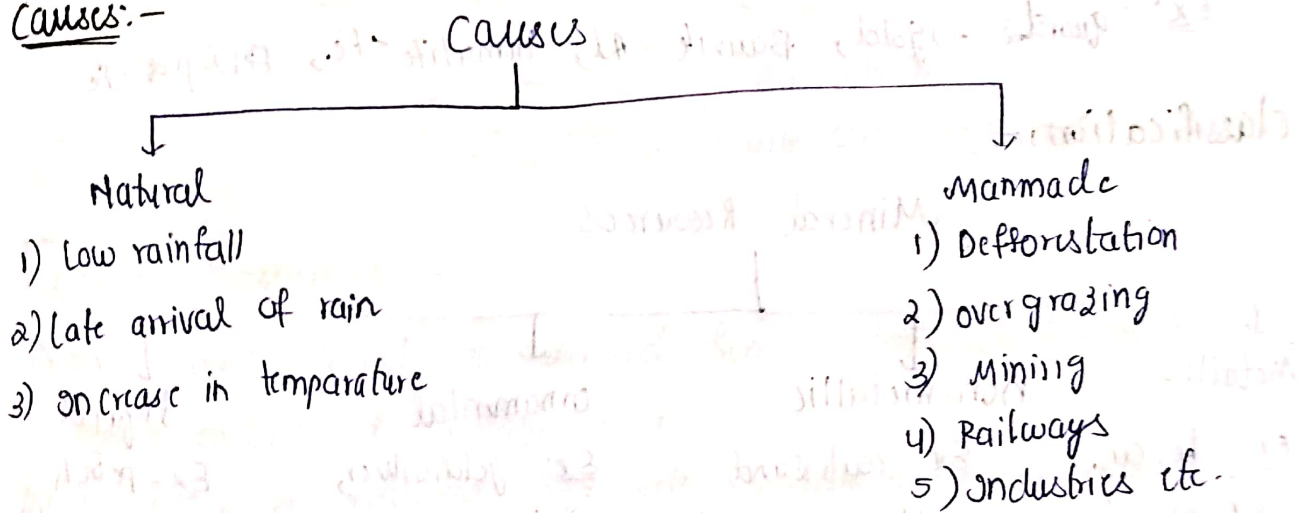 Causes:-
Causes
Natural
1) Low rainfall
2) late arrival of rain
3) Increase in temparature
Manmade
1) Defforestation
2) overgrazing
3) Mining
4) Railways
5) Industries etc.